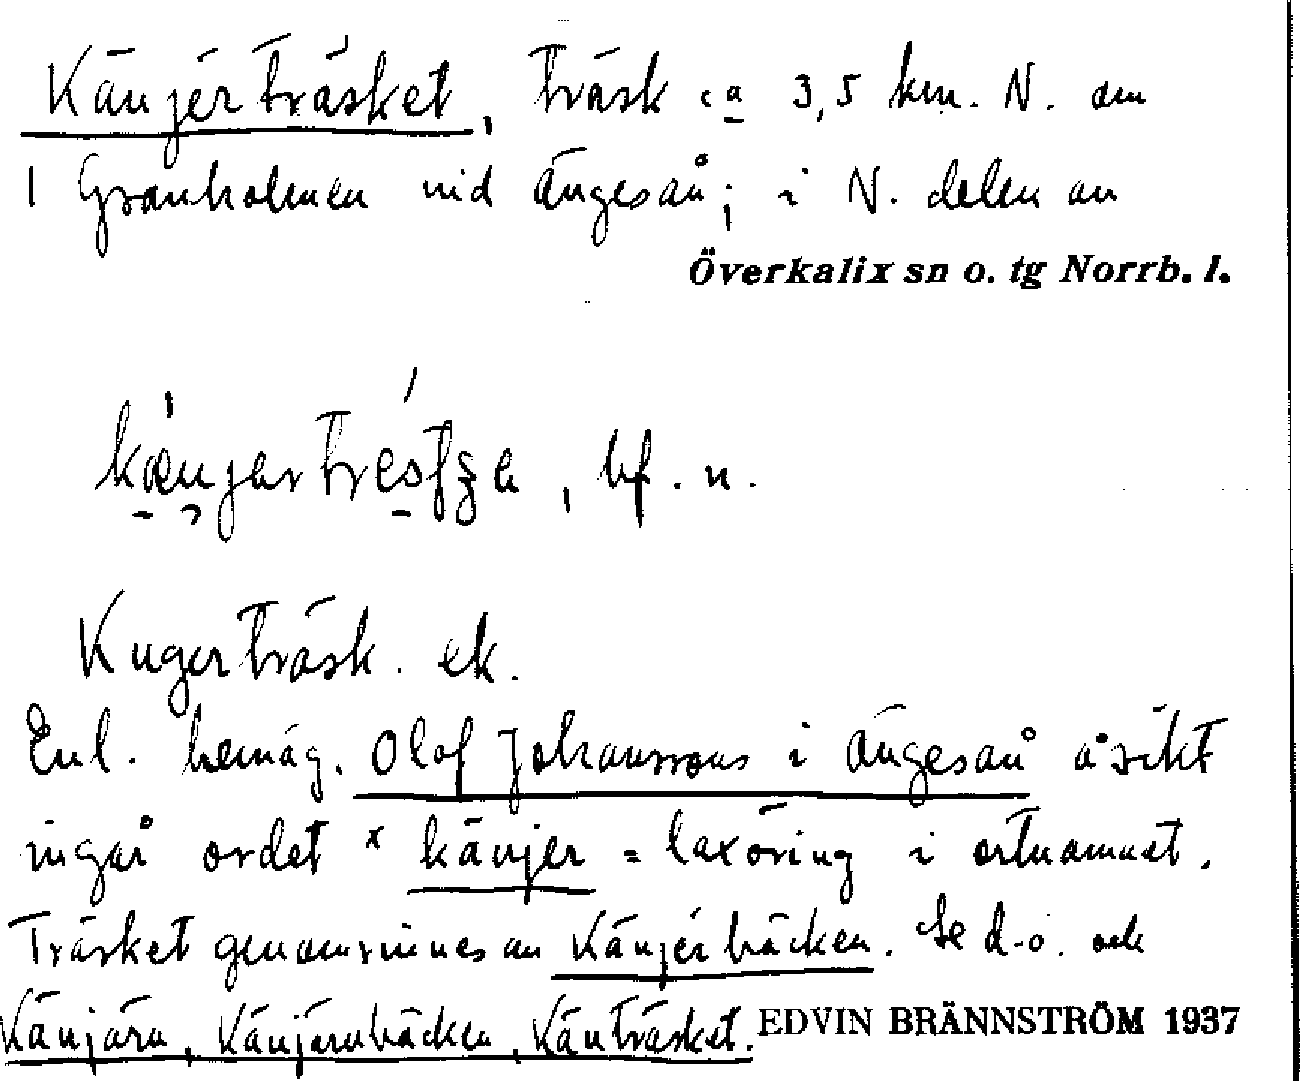 Känjérträsket, träsk ca 3,5 km. N. om
1 Granholmen vid Ängesån; i N. delen av
Överkalix sn o. tg Norrb. l.
bf. n.
Kugerträsk. ek.
Enl. hemäg. Olof Johanssons i Ängesån åsikt
ingår ordet x känjer = laxöring i ortnamnet.
Träsket genomrinnes av Känjérbäcken. Se d.o. och
Känjärn, Känjärnbäcken, Känträsket. EDVIN BRÄNNSTRÖM 1937